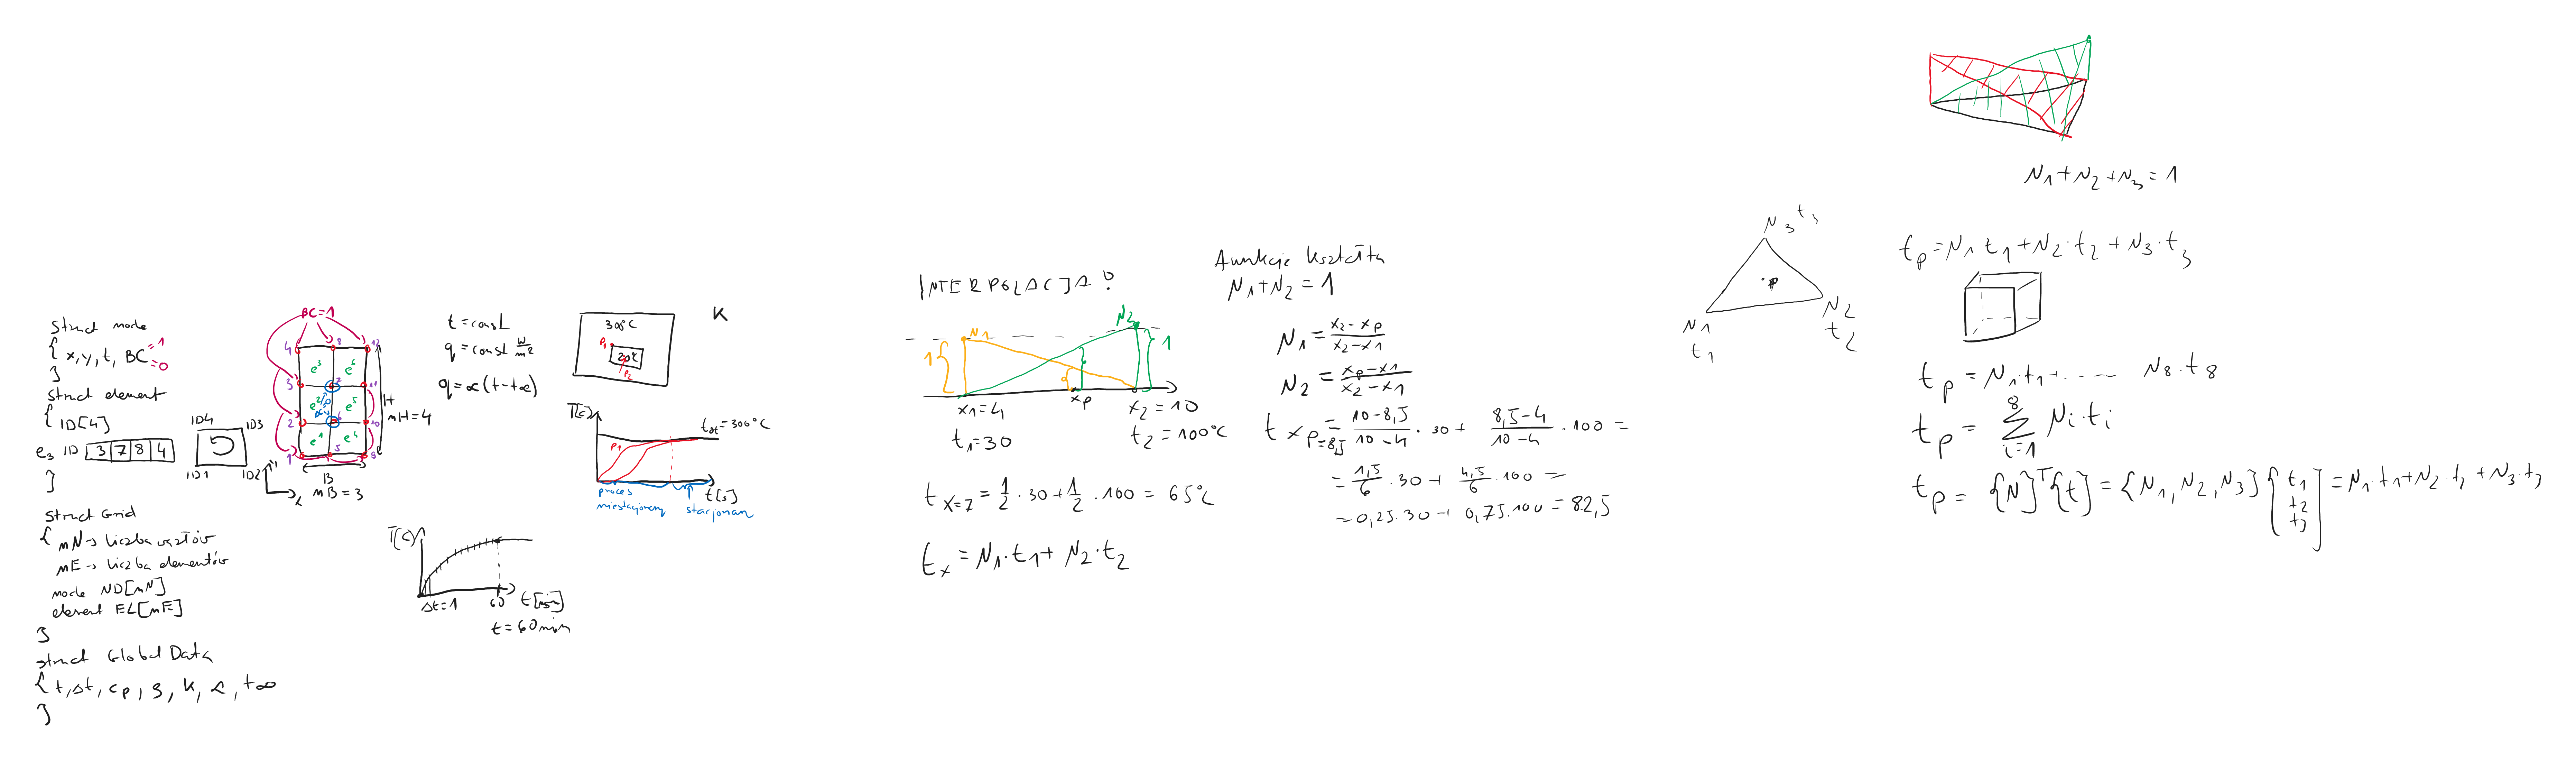 struct node
{ x, y, t, BC =1
=0
}
struct element
{ ID[4]
e3 ID 3 7 8 4
}
ID4 ID3
ID1 ID2
struct Grid
{ nN → liczba węzłów
nE → liczba elementów
node ND[nN]
element EL[nE]
}
struct Global Data
{ t, Δt, cp, ρ, k, α, t∞
}
BC=1
4 8 12
e3 e6
3 7 11
e2 e5
2 6 10
e1 e4
1 5 9
H
nH=4
B
nB=3
t = const
q = const W/m²
q = α(t - t∞)
T(c)
Δt=1 60 t[min]
t = 60 min
300°C
P1
20°C
P2
K
T(c)
P1
tot = 300°C
t[s]
proces
niestacjonarny stacjonarny
INTERPOLACJA?
N1 N2
1 1
x1=4 xp x2=10
t1=30 t2=100°C
t x=7 = 1/2 · 30 + 1/2 · 100 = 65°C
tx = N1·t1 + N2·t2
Funkcje kształtu
N1+N2 = 1
N1 = (x2-xp)/(x2-x1)
N2 = (xp-x1)/(x2-x1)
t xp=8,5 = (10-8,5)/(10-4) · 30 + (8,5-4)/(10-4) · 100 =
= 1,5/6 · 30 + 4,5/6 · 100 =
= 0,25·30 + 0,75·100 = 82,5
N3 t3
·p
N1
t1
N2
t2
N1+N2+N3 = 1
tp = N1·t1 + N2·t2 + N3·t3
tp = N1·t1 + ---- N8·t8
tp = Σ i=1 8 Ni·ti
tp = {N}ᵀ{t} = {N1, N2, N3} {t1 t2 t3} = N1·t1 + N2·t2 + N3·t3